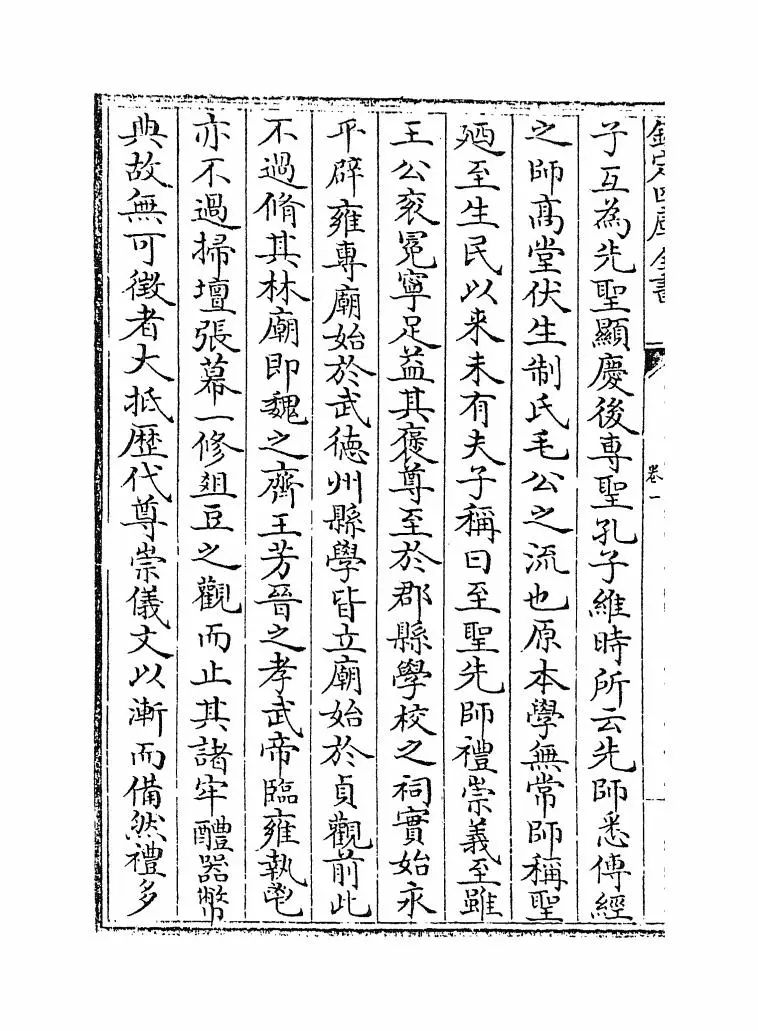 欽定四庫全書
卷一
子互為先聖顯慶後専聖孔子維時所云先師悉傳經
之師髙堂伏生制氏毛公之流也原本學無常師稱聖
廼至生民以来未有夫子稱曰至聖先師禮崇義至雖
王公衮冕寧足益其褒尊至於郡縣學校之祠實始永
平辟雍専廟始於武徳州縣學皆立廟始於貞觀前此
不過脩其林廟即魏之齊王芳晉之孝武帝臨雍執鬯
亦不過掃壇張幕一修爼豆之觀而止其諸牢醴器幣
典故無可徵者大抵歴代尊崇儀文以漸而備然禮多